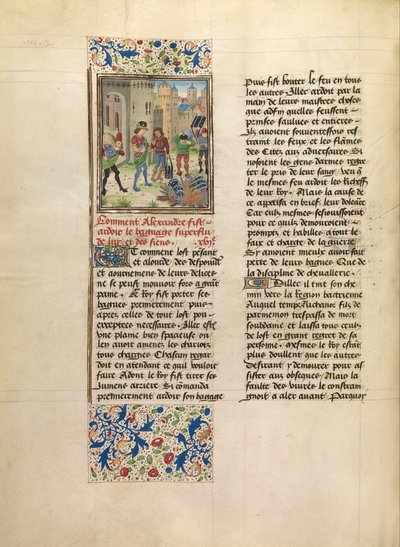 Comment Alexandre fist
ardoir le bagnaige superflu
de luy et des siens. xvj.e
Et comment lost pesant
et alourde des despouilles
et aournemens de leurs delices
ne se peust mouvoir fors a grant
paine. Le Roy fist porter ses
bagues premierement puis
apres celles de tout lost pou
exceptees necessaires. Illec est
une plaine bien spacieuse ou
len avoit amenez les chariotz
tous chargies Chascun regar
doit en attendant ce quil vouloit
faire Adont le Roy fist tirer les
Jumens arriere Si comanda
premierement ardoir son bagage
Puis fist bouter le feu en tous
les autres. Illec ardoit par la
main de leurs maistres choses
que adfin quelles feussent
prinses saulves et entieres
Ilz avoient souventeffois res
traint les feux et les flames
des Citez aux adversaires Si
nosoient les gens darmes regre
ter le pris de leur sang veu que
le mesmes feu ardoit les Richesses
de leur Roy. Mais la cause de
ce appaisa en brief leur doleance
Car eulx mesmes sesjouissoient
pour ce quilz demouroient
promptz et habilles a tout le
faix et charge de la guerre
Sy amoient mieulx avoir fait
perte de leurs bagues Que de
la discipline de chevallerie.
Dillec il tint son che
min vers la Region bactrienne
Auquel temps Nichanor filz de
parmenion trespassa de mort
soubdaine et laissa tous ceulx
de lost en grant regret de sa
personne. mesmes le Roy estoit
plus doullent que les autres
Desirant y demourer pour as
sister aux obseques Mais la
faulte des vivres le constraingnoit
a aler avant Parquoy